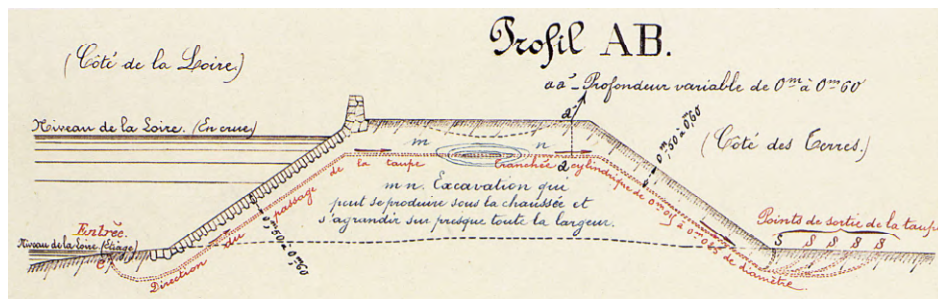 Profil AB.
(Côté de la Loire.)
aa' - Profondeur variable de 0m à 0m60
Niveau de la Loire. (En crue)
(Côté des Terres.)
a'
m n
a
0m50 à 0m60
Direction du passage de la taupe
tranchée cylindrique de 0m05 à 0m06 de diamètre.
m n. Excavation qui
peut se produire sous la chaussée et
s'agrandir sur presque toute la largeur.
0m50 à 0m60
Entrée.
Niveau de la Loire. (Étiage)
Points de sortie de la taupe
S S S S S